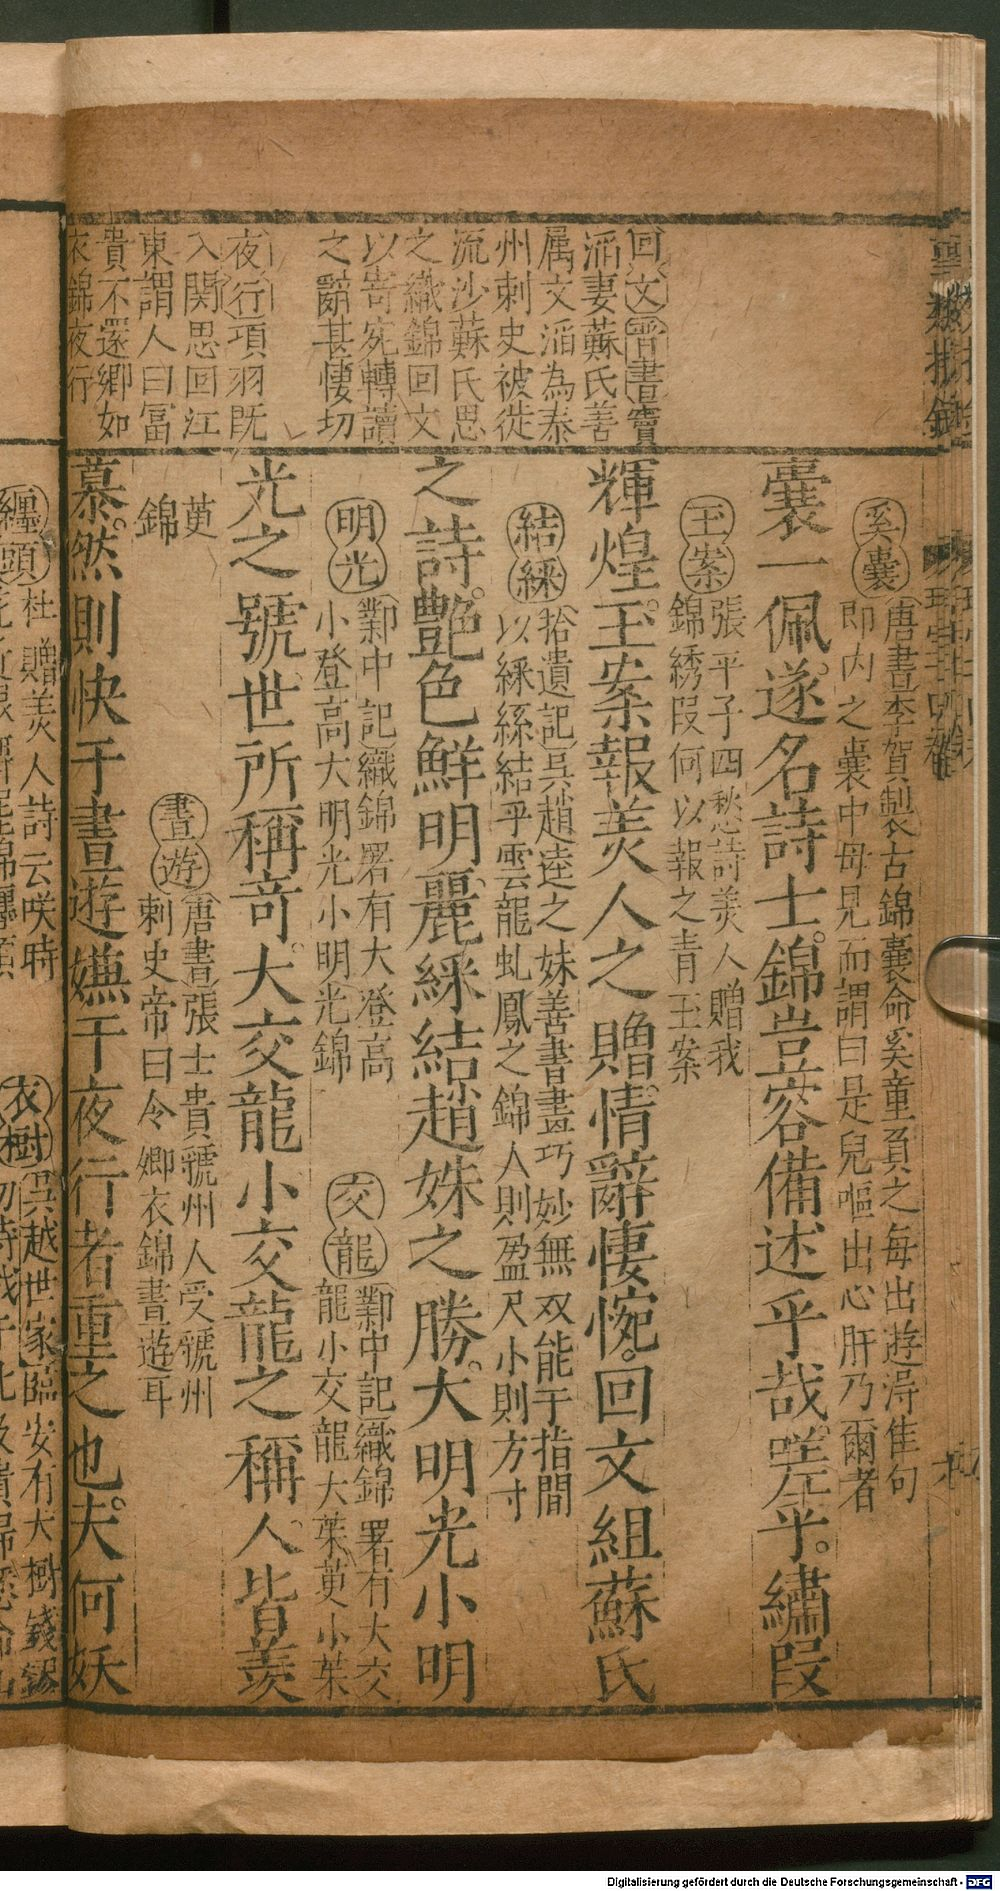 回文晋書竇
滔妻蘇氏善
属文滔為秦
州刺史被徙
流沙蘇氏思
之織錦回文
以寄宛轉讀
之辭甚悽切
夜行項羽既
入関思回江
東謂人曰冨
貴不還鄉如
衣錦夜行
奚囊
唐書李賀製古錦囊命奚童負之每出遊得佳句
即内之囊中母見而謂曰是兒嘔出心肝乃爾者
囊一佩遂名詩士錦豈容備述乎哉嗟乎繡段
玉案
張平子四愁詩美人贈我
錦綉段何以報之青玉案
輝煌玉案報美人之贈情辭悽惋回文組蘇氏
結綵
拾遺記吳趙逵之妹善書畫巧妙無双能于指間
以綵絲結乎雲龍虬鳳之錦人則盈尺小則方寸
之詩艶色鮮明麗綵結趙姝之勝大明光小明
明光
鄴中記織錦署有大登高
小登高大明光小明光錦
交龍
鄴中記織錦署有大交
龍小交龍大茱萸小茱
光之號世所稱竒大交龍小交龍之稱人皆羨
萸
錦
晝遊
唐書張士貴虢州人受虢州
刺史帝曰令卿衣錦晝遊耳
慕然則快于晝遊嫌于夜行者重之也夫何妖
纏頭
杜贈美人詩云咲時
衣樹
吳越世家臨安有大樹錢鏐
Digitalisierung gefördert durch die Deutsche Forschungsgemeinschaft - DFG